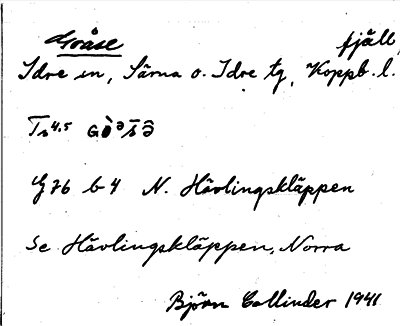 Gråse fjäll,
Idre sn, Särna o. Idre tg, Koppb. l.
G76 b4 N. Hävlingskläppen
Se Hävlingskläppen, Norra
Björn Collinder 1941